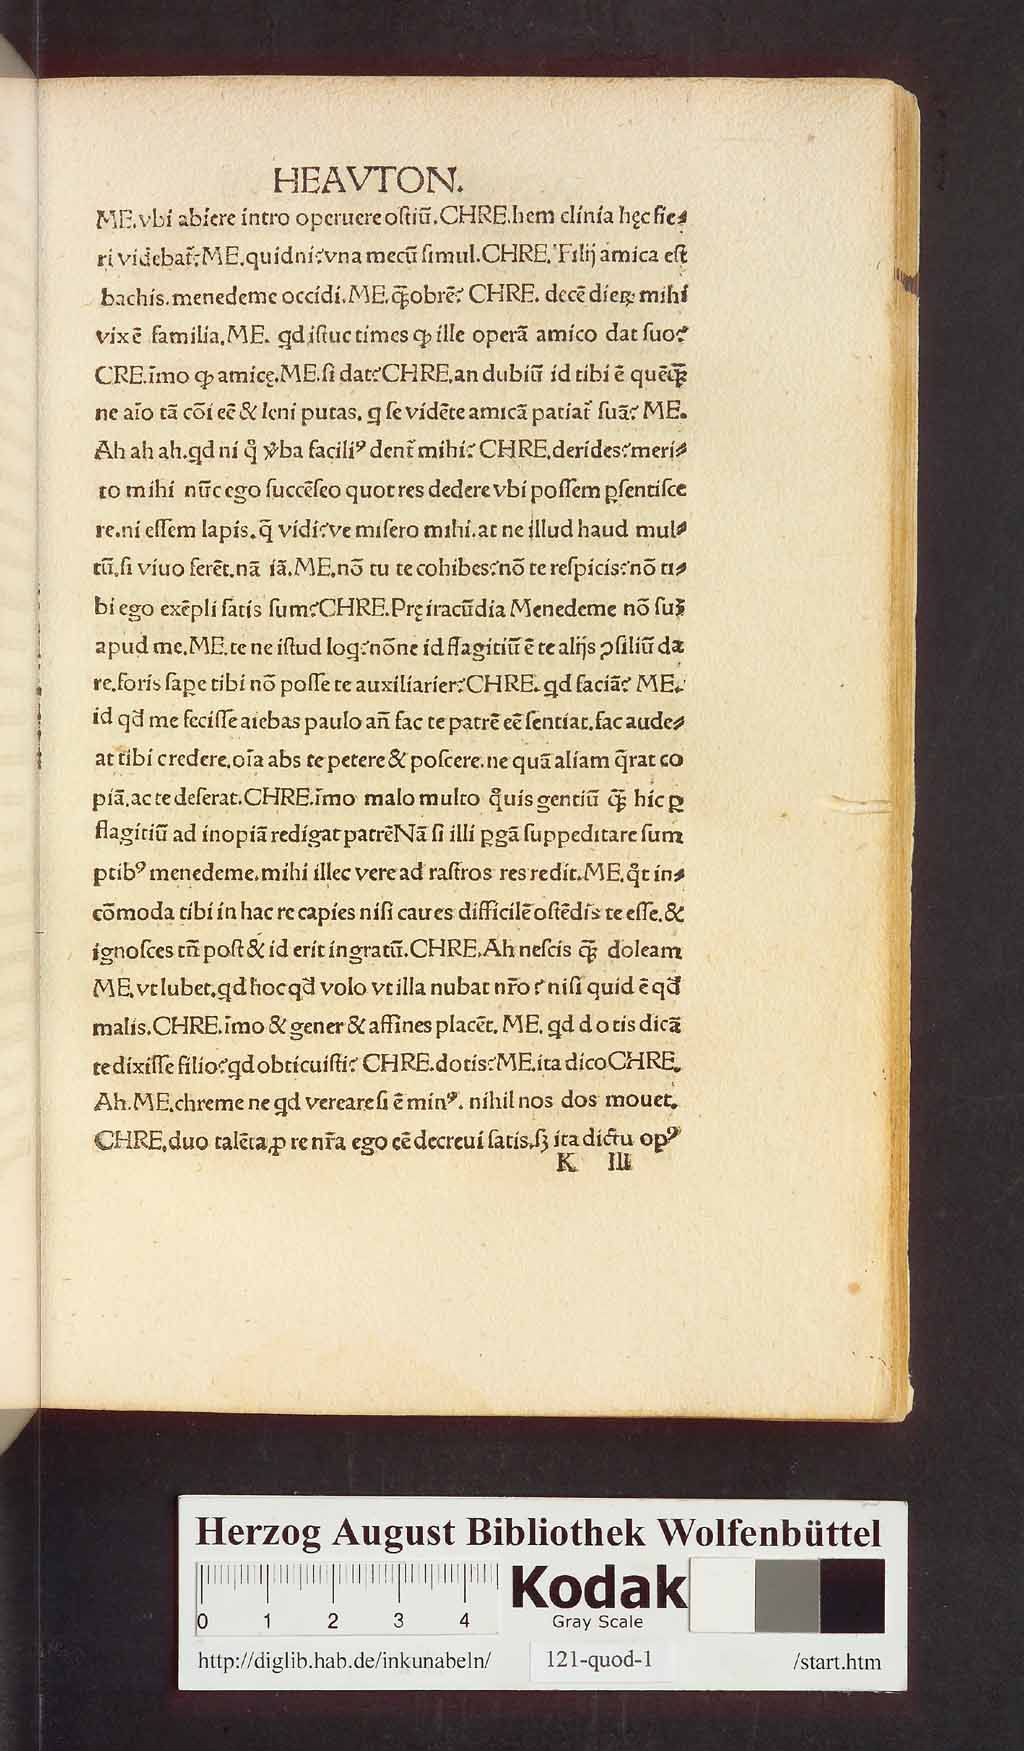 HEAVTON.
ME.vbi abiere intro operuere ostiū.CHRE.hem clinia hęc fie-
ri videbat̃?ME.quidni?vna mecū simul.CHRE. Filij amica est
bachis.menedeme occidi.ME.q̄obrē? CHRE. decē dieꝝ mihi
vix ē familia.ME. qd istuc times ꝙ ille operā amico dat suo?
CRE.īmo ꝙ amicę.ME.si dat?CHRE.an dubiū id tibi ē quēq̄
ne aīo tā cōi eē & leni putas. q se vidēte amicā patiat̃ suā? ME.
Ah ah ah.qd ni q̊ v̊ba faciliꝰ dent̃ mihi? CHRE.derides?meri-
to mihi nūc ego succēseo quot res dedere vbi possem p̱sentisce
re.ni essem lapis.q̄ vidi?ve misero mihi.at ne illud haud mul-
tū.si viuo ferēt.nā iā.ME.nō tu te cohibes?nō te respicis?nō ti-
bi ego exēpli satis sum?CHRE.Pręiracūdia Menedeme nō sūꝫ
apud me.ME.te ne istud loq?nōne id flagitiū ē te alijs ꝯsiliū da
re.foris sape tibi nō posse te auxiliarier?CHRE.qd faciā? ME.
id qd̄ me fecisse aiebas paulo añ fac te patrē eē sentiat.fac aude-
at tibi credere.oīa abs te petere & poscere.ne quā aliam q̄rat co
piā.ac te deserat.CHRE.īmo malo multo q̊uis gentiū q̄ hic ꝑ
flagitiū ad inopiā redigat patrēNā si illi pgā suppeditare sum
ptibꝰ menedeme.mihi illec vere ad rastros res redit.ME.q̊t in-
cōmoda tibi in hac re capies nisi caues difficilē ostēdis te esse.&
ignosces tñ post & id erit ingratū.CHRE.Ah nescis q̄ doleam
ME.vt lubet.qd hoc qd̄ volo vt illa nubat nr̄o? nisi quid ē qd̄
malis.CHRE.īmo & gener & affines placēt. ME. qd dotis dicā
te dixisse filio?qd obticuisti? CHRE.dotis?ME.ita dicoCHRE.
Ah.ME.chreme ne qd vereare.si ē minꝰ. nihil nos dos mouet.
CHRE.duo talēta.ꝓ re nr̄a ego eē decreui satis.sꝫ ita dictu opꝰ
K III
Herzog August Bibliothek Wolfenbüttel
0 1 2 3 4
Kodak
Gray Scale
http://diglib.hab.de/inkunabeln/ 121-quod-1 /start.htm